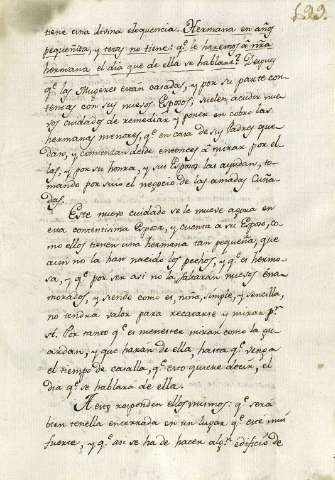 122.
tiene una divina eloquencia. Hermana en años
pequeñita, y tetas no tiene: q.e le haremos á nr̃a
hermana el dia que de ella se hablare? Despues
q.e las Mugeres estan casadas, y por su parte con-
tentas con sus nuevos Esposos, suelen acudir nue-
vos cuidados de remediar y poner en cobro las
hermanas menores, q.e en casa de su Padres que-
dan, y comienzan desde entonces á mirar por el-
las, y por su honra, y sus Esposos las ayudan, to-
mando por suio el negocio de las amadas Cuña-
das.
Este nuevo cuidado se le mueve agora en
esta contentisima Esposa, y cuenta a su Esposo, co-
mo ellos tienen una hermana tan pequeña, que
aun no la han nacido los pechos, y q.e es hermo-
sa, y q.e por ser asi no la faltarán nuevos ena-
morados, y siendo como es, niña, simple, y sencilla,
no tendrá valor para recatarse ni mirar p.r
si. Por tanto q.e es menester miran como la gu-
ardarán, y que harán de ella, hasta q.e venga
el tiempo de casalla, q.e eso quiere decir, el
dia q.e se hablará de ella.
A esto responden ellos mismos: q.e será
bien tenella encerrada en un lugar q.e esté mui
fuerte, y q.e asi se ha de hacer alg.n edificio de